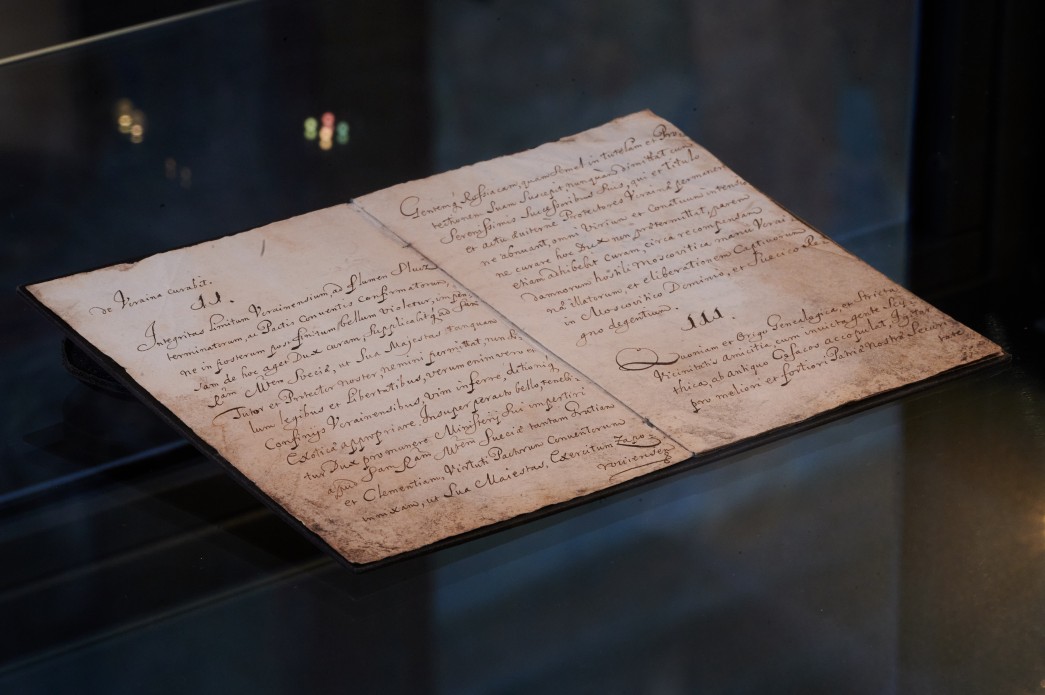 de Ucraina curabit.
II.
Integritas limitum Ucrainensium, ad flumen Sluiz
terminatorum, ac Pactis Conventis confirmatorum,
ne in posterum post finitum bellum violetur, im pen-
sam de hoc aget Dux curam, supplicabit apud Sam
Ram Mtem Sveciæ, ut Sua Majestas tanquam
Tutor et Protector noster nemini permittat nul-
lum legibus et Libertatibus, verum enimvero et
Confinys Ucrainensibus, vim inferre, ditioniq.
Exoticæ appropriare. Insuper peracto bello, tenebi-
tur Dux pro munere Ministerij sui impertiri
apud Sam Ram Mtem Sueciæ tantam Gratiam
et Clementiam, Virtuti Pactorum Conventorum
innixam, ut Sua Maiestas, Exercitum Zapo-
roviensem
Gentemq Rossiacam, quam semel in tutelam et Pro-
tectionem suam suscepit, nunquam dimittat cum
Serenissimis Successoribus suis, qui et titulo
et actu æviternè Protectores Ucrainæ permanere
ne abnuant, omni virium et Conatuum intensi
ne curare hoc Dux non prætermittat, parem
etiam adhibebit curam circa recompensam
damnorum hostili Moscovitica manu Ucrai-
næ illatorum, et liberationem Captivorum
in Moscovitico Dominio, et Suecico Re-
gno degentium.
III.
Quoniam ex Origi Genealogica, ex strictâ
Vicinitatis amicitia cum invictâ gente
thica, ab antiquo Cosacos accopulat,
pro meliori et fortiori Patriæ Nostræ securi-
tate